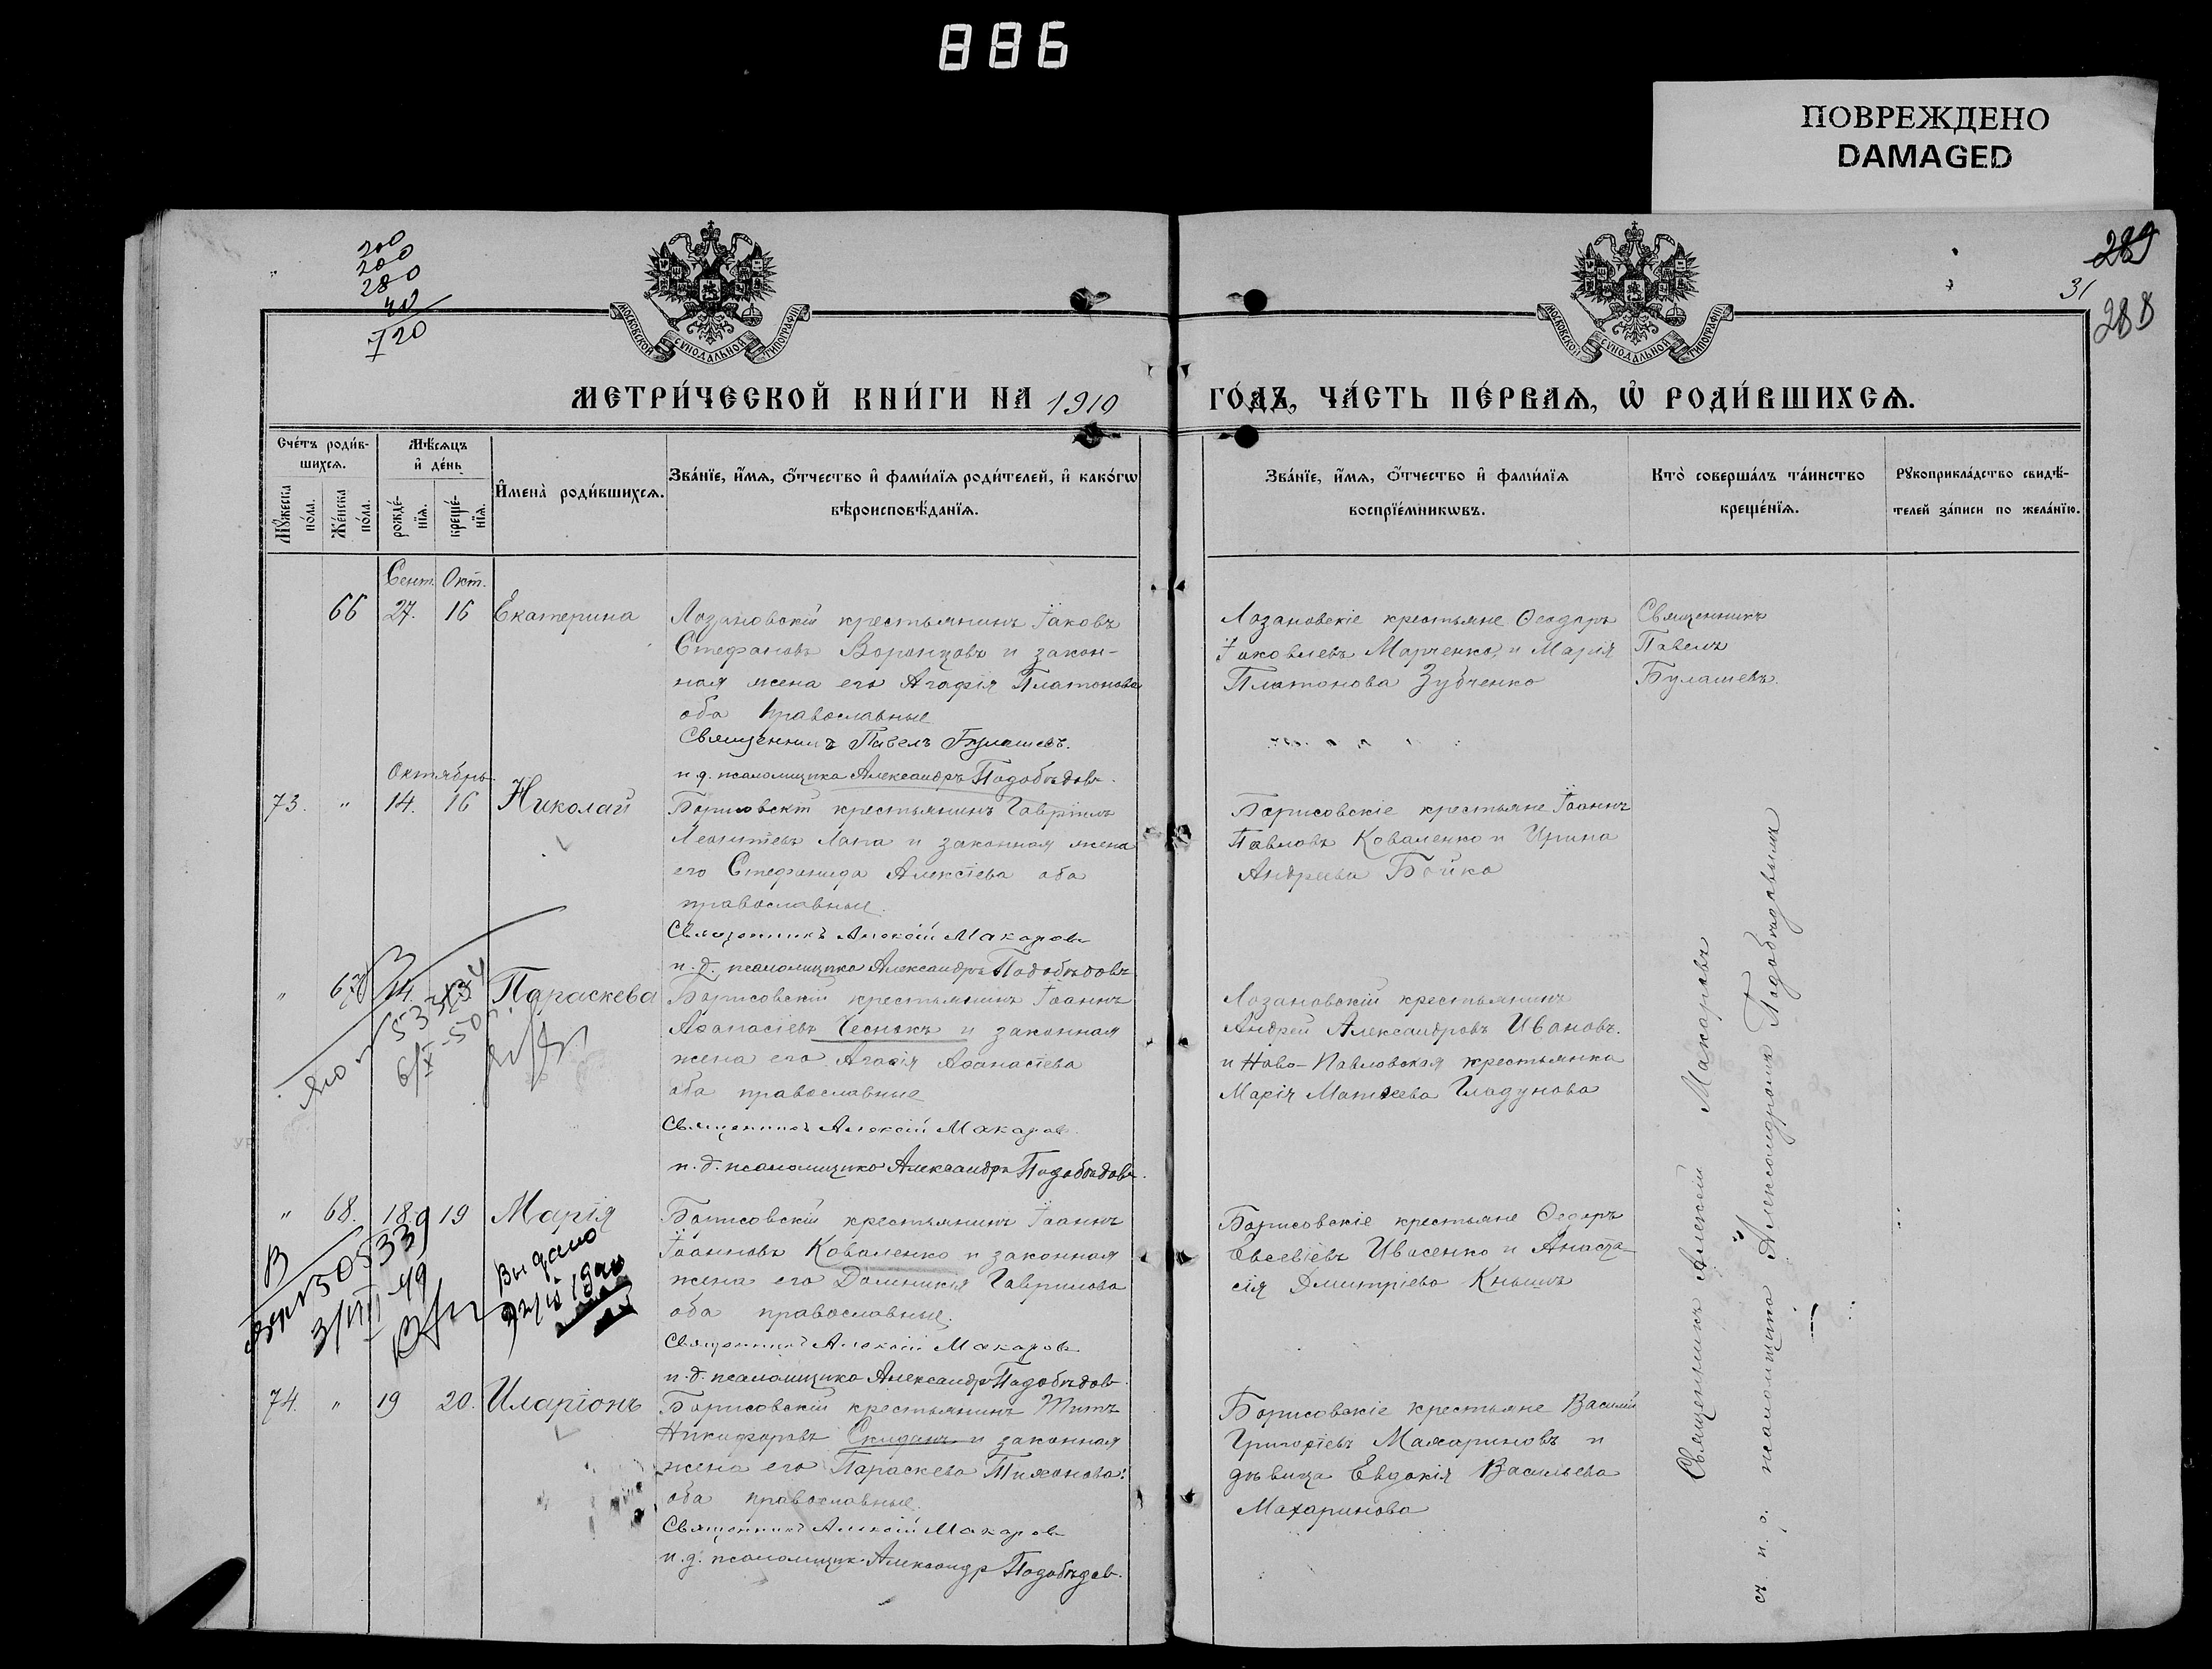 886
ПОВРЕЖДЕНО
DAMAGED
200
200
280
40
720
289
31
288
МОСКОВСКОЙ СѴНОДАЛЬНОЙ ТИПОГРАФІИ
МОСКОВСКОЙ СѴНОДАЛЬНОЙ ТИПОГРАФІИ
МЕТРИ́ЧЕСКОЙ КНИ́ГИ НА 1910 ГО́ДЪ, ЧА́СТЬ ПЕ́РВАЯ, Ѡ РОДИ́ВШИХСЯ.
Сче́тъ роди́в-
шихся.
Мѣ́сяцъ
и де́нь
Му́жеска
по́ла.
Же́нска
по́ла.
рожде́-
нїя.
креще́-
нїя.
Имена̀ роди́вшихся.
Зва́нїе, и́мя, о́тчество и фами́лїя роди́телей, и како́гѡ
вѣроисповѣ́данїя.
Зва́нїе, и́мя, о́тчество и фами́лїя
воспрїе́мникѡвъ.
Кто̀ соверша́лъ та́инство
креще́нїя.
Рукоприкла́дство свидѣ́-
телей за́писи по жела́нїю.
Сент. Окт.
66 27. 16 Екатерина
Лозановскій крестьянинъ Іаковъ
Стефановъ Воронцовъ и закон-
ная жена его Агафія Платонова
оба православные
Священникъ Павелъ Булашевъ.
и.д. псаломщика Александръ Подобѣдовъ.
Лозановскіе крестьяне Ѳеодоръ
Іаковлевъ Марченко, и Марія
Платонова Зубченко
Священникъ
Павелъ
Булашевъ.
Октябрь
73. " 14. 16 Николай
Борисовскій крестьянинъ Гавріилъ
Леонтіевъ Лапа и законная жена
его Стефанида Алексіева оба
православные.
Священникъ Алексій Макаровъ
и.д. псаломщика Александръ Подобѣдовъ
Борисовскіе крестьяне Іоаннъ
Павловъ Коваленко и Ирина
Андреева Бойко
" 67 14. Параскева
Борисовскій крестьянинъ Іоаннъ
Аѳанасіевъ Чеснокъ и законная
жена его Агафія Аѳанасіева
оба православные
Священникъ Алексій Макаровъ
и.д. псаломщика Александръ Подобѣдовъ.
Лозановскій крестьянинъ
Андрей Александровъ Ивановъ.
и Ново-Павловская крестьянка
Марія Матѳеева Гладунова
" 68. 18. 19 Марія
Борисовскій крестьянинъ Іоаннъ
Іоанновъ Коваленко и законная
жена его Домникія Гаврилова
оба православные.
Священникъ Алексій Макаровъ
и.д. псаломщика Александръ Подобѣдовъ.
Борисовскіе крестьяне Ѳеодоръ
Евсевіевъ Ивасенко и Анаста-
сія Дмитріева Кнышъ
Выдано
74. " 19 20. Иларіонъ
Борисовскій крестьянинъ Титъ
Никифоровъ Скиданъ и законная
жена его Параскева Тихонова:
оба православные.
Священникъ Алексій Макаровъ
и.д. псаломщик. Александр Подобѣдов.
Борисовскіе крестьяне Василій
Григоріевъ Махариновъ и
дѣвица Евдокія Васильева
Махаринова
Священникъ Алексій Макаровъ
съ и.д. псаломщика Александромъ Подобѣдовымъ